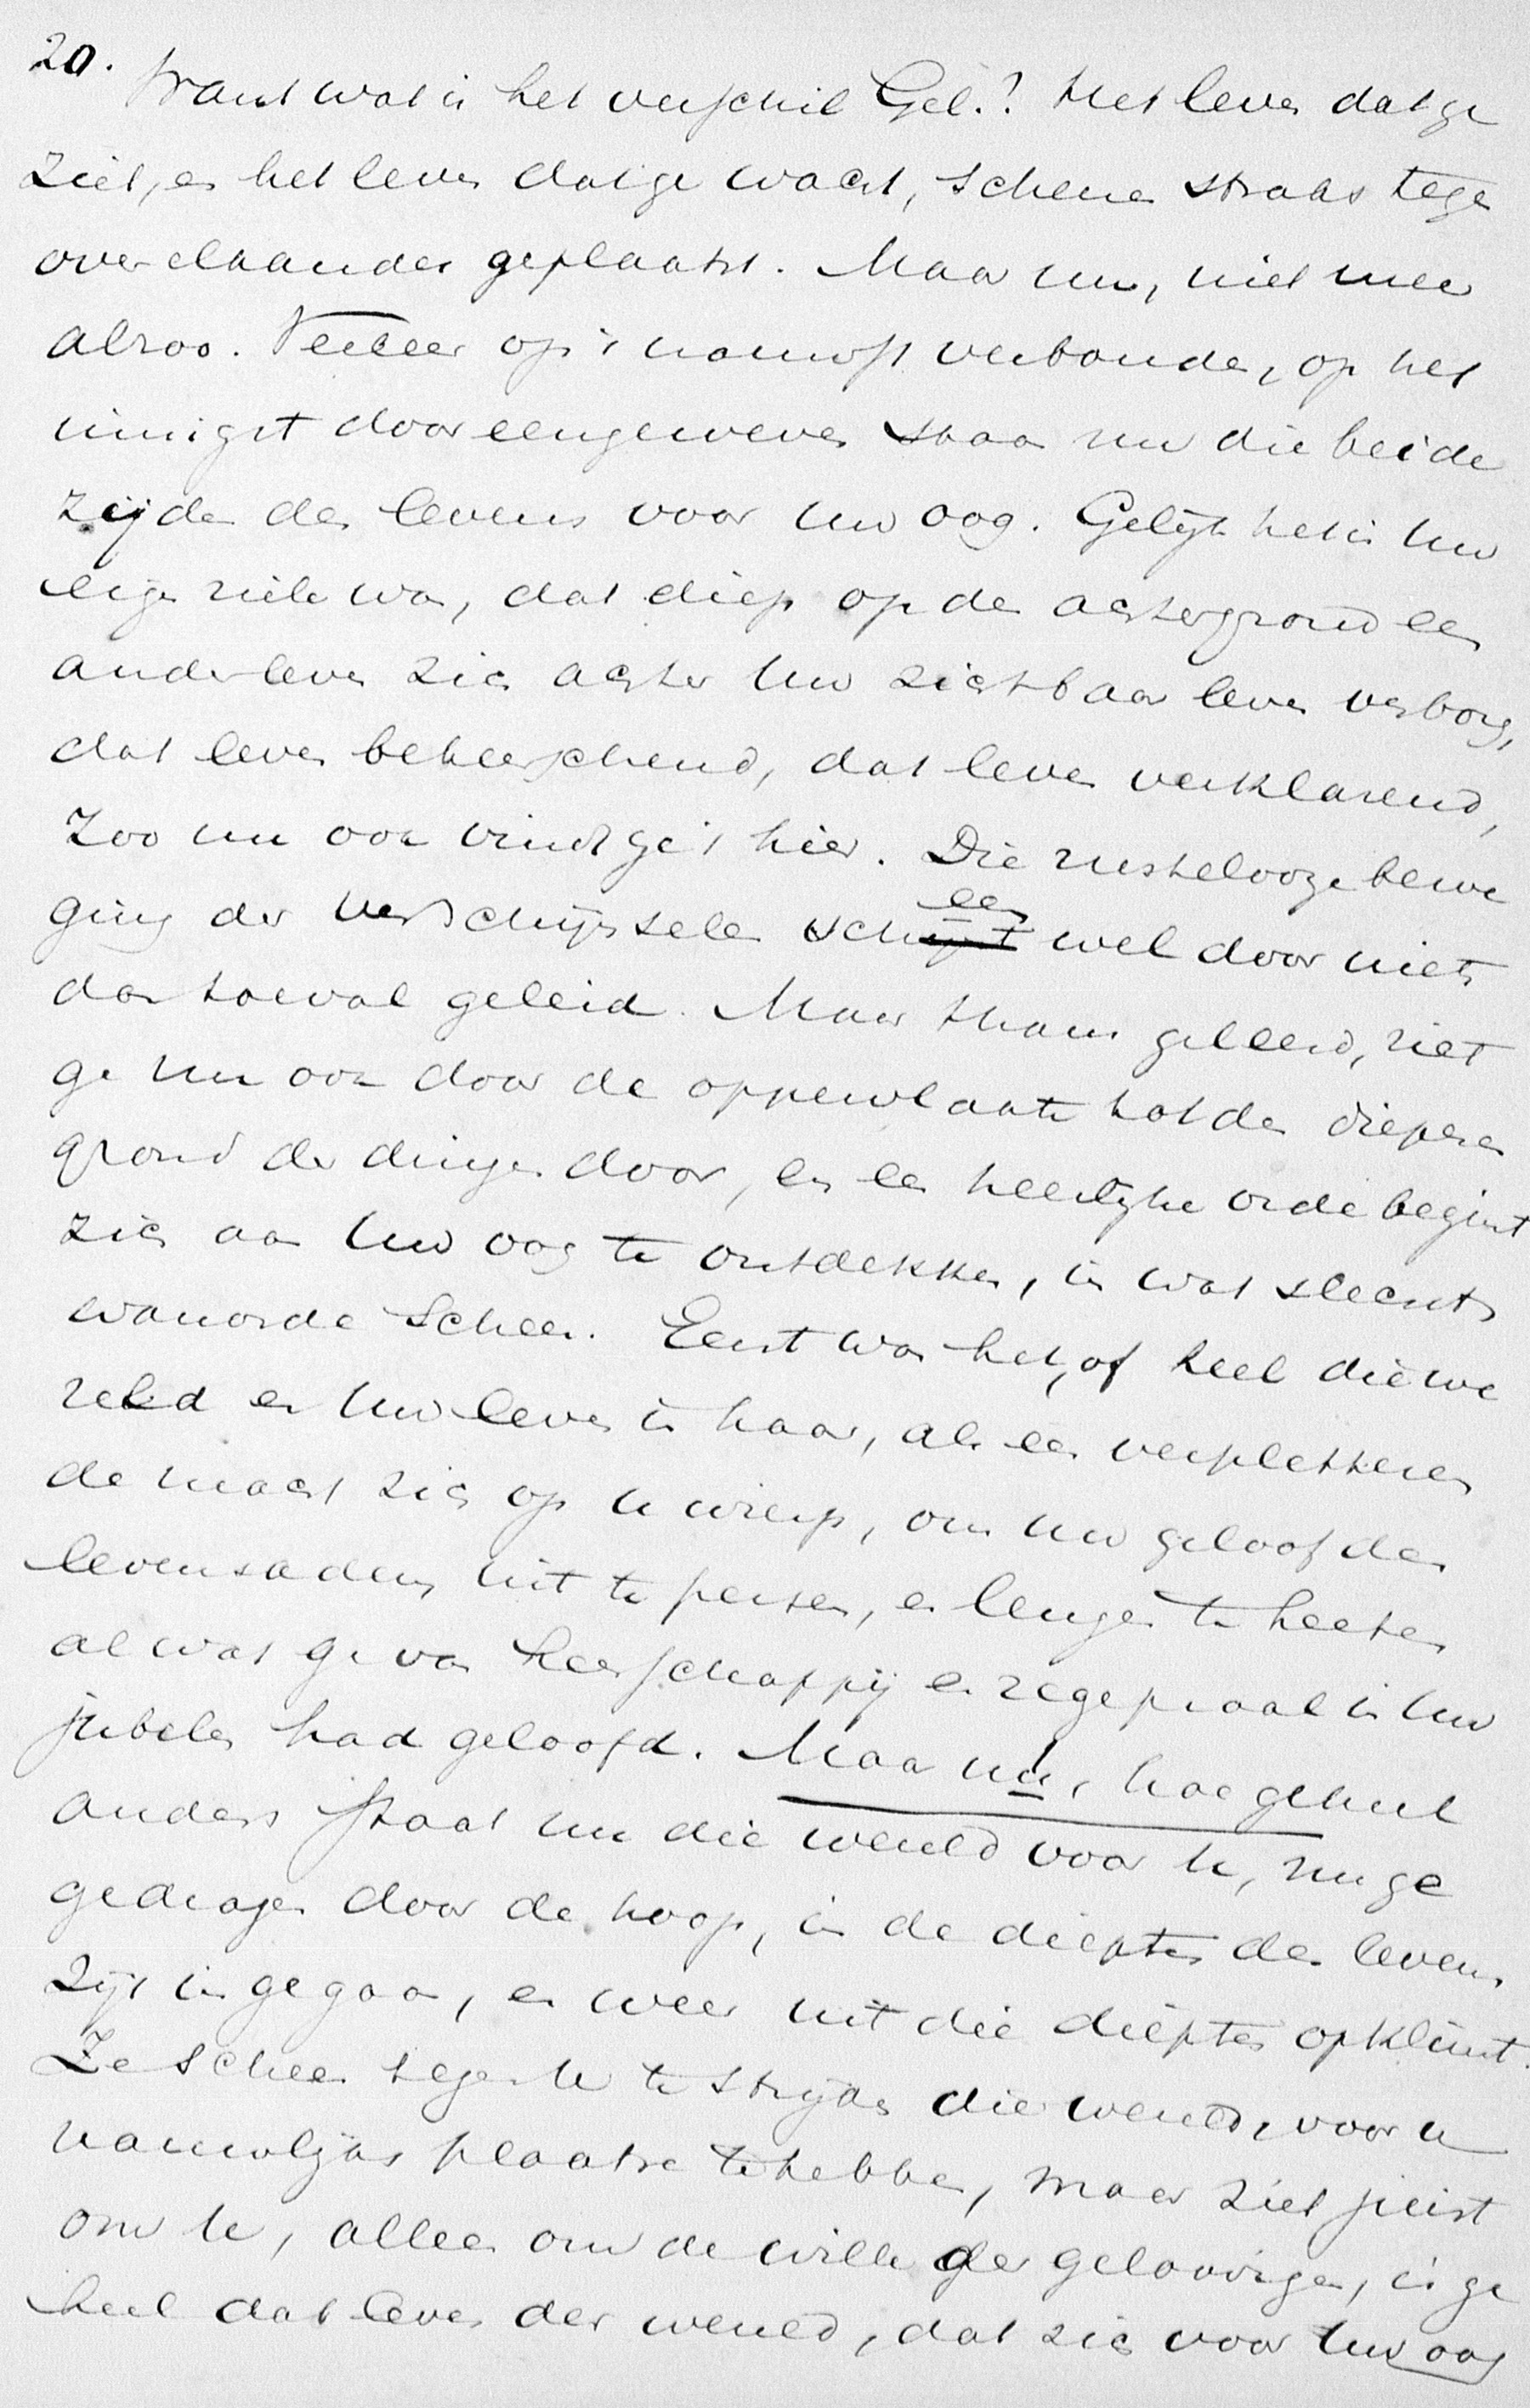 20.
Want wat is het verschil Gel.? Het leven dat ge
ziet, en het leven dat ge wacht, schenen straks tegen
over elkander geplaatst. Maar nu, niet meer
alzoo. Veeleer op 't nauwst verbonden, op het
innigst dooreengeweven staan nu die beide
zijden des levens voor Uw oog. Gelijk het in Uw
eigen ziele was, dat diep op den achtergrond een
ander leven zich achter Uw zichtbaar leven verborg,
dat leven beheerschend, dat leven verklarend,
Zoo nu ook vindt ge 't hier. Die rustelooze bewe
ging der verschijnselen scheen wel door niets
dan toeval geleid. Maar thans geleerd, ziet
ge nu ook door de oppervlakte tot den dieperen
grond der dingen door, en een heerlijke orde begint
zich aan Uw oog te ontdekken, in wat slechts
wanorde scheen. Eerst was het, of heel die we
reld en Uw leven in haar, als een verpletteren
de macht zich op U wierp, om Uw geloof den
levensadem uit te persen, en leugen te heeten
al wat ge van heerschappij en zegepraal in Uw
jubelen had geloofd. Maar nu, hoe geheel
anders staat nu die wereld voor U, nu ge
gedragen door de hoop, in de diepten des levens
zijt ingegaan, en weer uit die diepten opklimt.
Ze scheen tegen U te strijden die wereld, voor U
nauwlijks plaatse te hebben, maar ziet juist
om U, alleen om de wille der geloovigen, is ge
heel dat leven der wereld, dat zich voor Uw oog